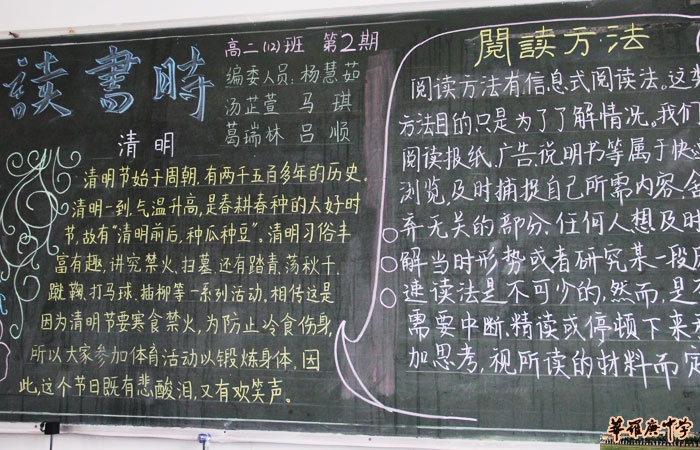 讀書時
高二(12)班 第2期
编委人员:杨慧茹
汤芷萱 马琪
葛瑞林 吕顺
清明
清明节始于周朝,有两千五百多年的历史。
清明一到,气温升高,是春耕春种的大好时
节,故有“清明前后,种瓜种豆”。清明习俗丰
富有趣,讲究禁火、扫墓,还有踏青、荡秋千、
蹴鞠、打马球、插柳等一系列活动,相传这是
因为清明节要寒食禁火,为防止冷食伤身,
所以大家参加体育活动以锻炼身体,因
此,这个节日既有悲酸泪,又有欢笑声。
閱读方法
阅读方法有信息式阅读法。这
方法目的只是为了了解情况。我们
阅读报纸、广告、说明书等属于快
浏览,及时捕捉自己所需内容,舍
弃无关的部分。任何人想及时
解当时形势或者研究某一段
速读法是不可少的,然而,是
需要中断、精读或停顿下来
加思考,视所读的材料而定
華羅庚中学